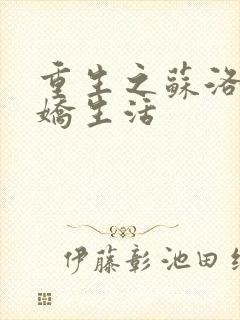 重生之蘇洛
嬌生活
伊藤彰池田